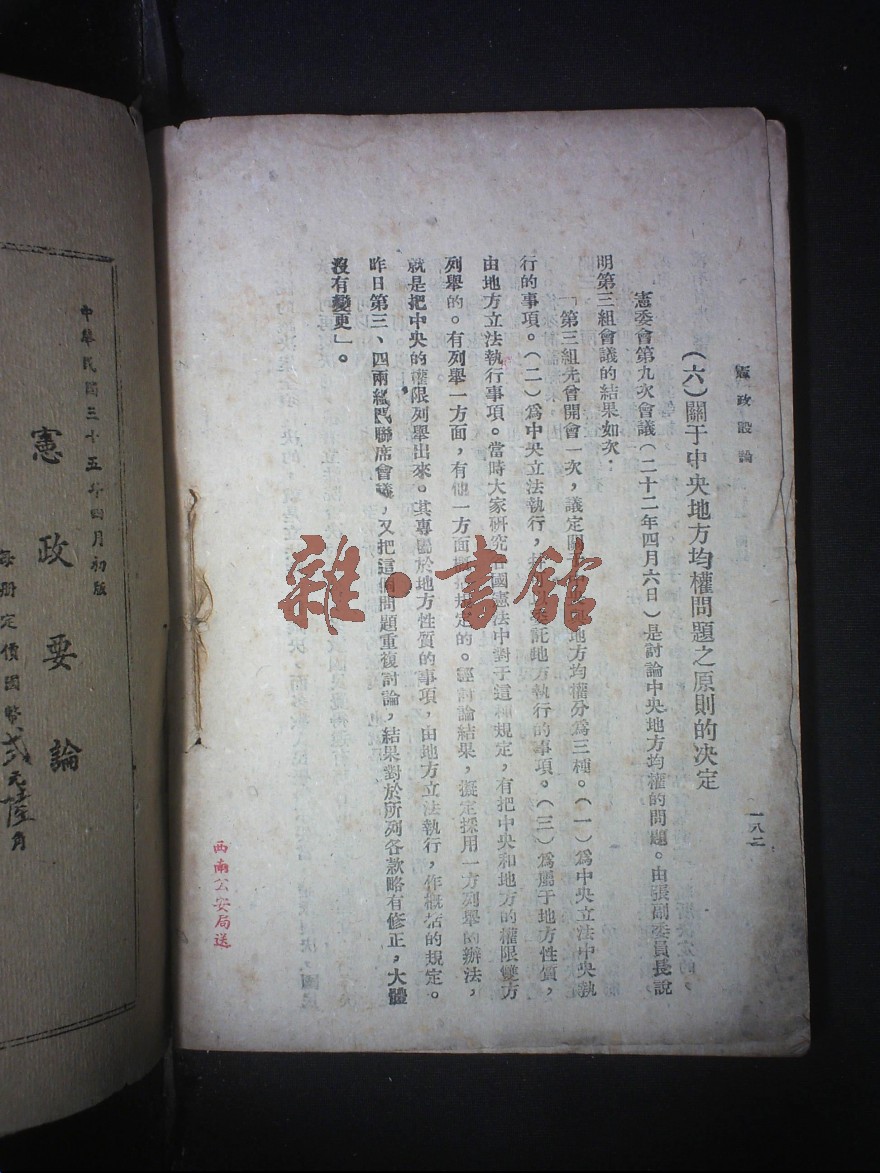 憲政設論
一八二
(六)關于中央地方均權問題之原則的决定
憲委會第九次會議(二十二年四月六日)是討論中央地方均權的問題。由張副委員長說
明第三組會議的結果如次：
「第三組先曾開會一次，議定關于中央與地方均權分爲三種。(一)爲中央立法中央執
行的事項。(二)爲中央立法執行，委託地方執行的事項。(三)爲屬于地方性質，
由地方立法執行事項。當時大家研究各國憲法中對于這種規定，有把中央和地方的權限雙方
列舉的。有列舉一方面，有他一方面概括規定的。經討論結果，擬定採用一方列舉的辦法，
就是把中央的權限列舉出來。其專屬於地方性質的事項，由地方立法執行，作概括的規定。
昨日第三、四兩組聯席會議，又把這個問題重複討論，結果對於所列各款略有修正，大體
沒有變更」。
西南公安局送
雜·書館
中華民國三十五年四月初版
憲政要論
每册定價國幣貳元陸角